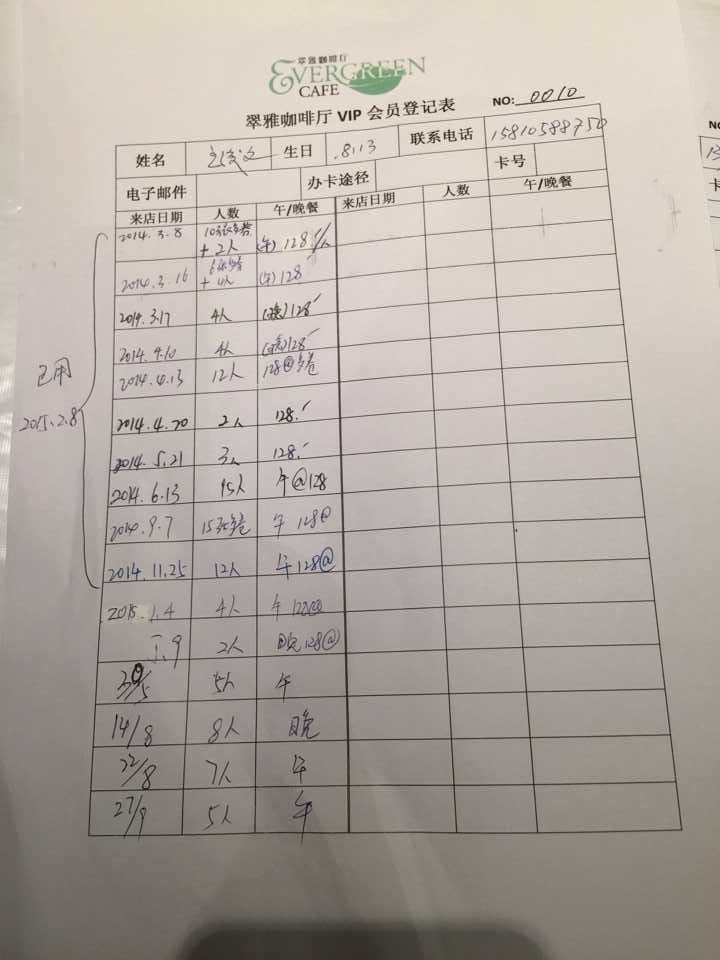 翠雅咖啡厅
EVERGREEN
CAFE
翠雅咖啡厅 VIP 会员登记表 NO: 0010
姓名 生日 8.13 联系电话
电子邮件 办卡途径 卡号
来店日期 人数 午/晚餐 来店日期 人数 午/晚餐
2014.3.8 10张套卷 + 2人 (午) 128/人
2014.3.16 + 4人 (午) 128
2014.3.17 4人 (晚) 128
2014. 4人 (晚) 128
2014.4.13 12人 128@
2014.4.20 2人 128
2014.5.21 3人 128
2014.6.13 15人 午@128
2014.9.7 午 128@
2014.11.25 12人 午128@
2015.1.4 4人 午 128@
1.9 2人 晚128@
30/5 5人 午
14/8 8人 晚
22/8 7人 午
27/9 5人 午
已用
2015.2.8